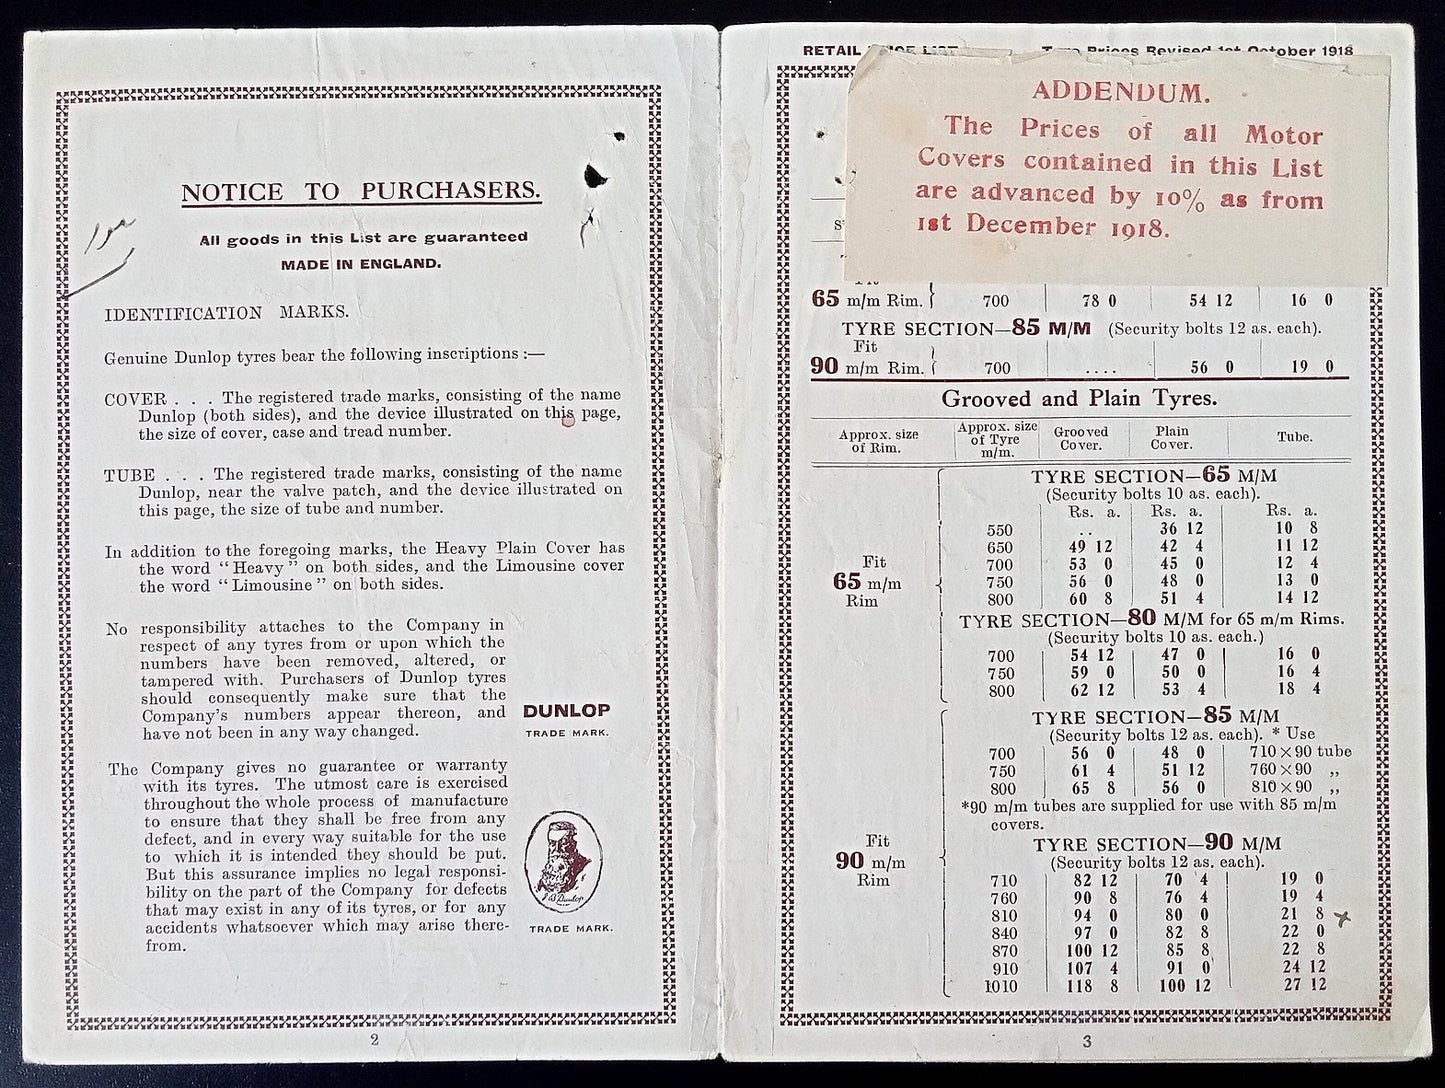 NOTICE TO PURCHASERS.
All goods in this List are guaranteed
MADE IN ENGLAND.
IDENTIFICATION MARKS.
Genuine Dunlop tyres bear the following inscriptions :—
COVER . . . The registered trade marks, consisting of the name
Dunlop (both sides), and the device illustrated on this page,
the size of cover, case and tread number.
TUBE . . . The registered trade marks, consisting of the name
Dunlop, near the valve patch, and the device illustrated on
this page, the size of tube and number.
In addition to the foregoing marks, the Heavy Plain Cover has
the word "Heavy" on both sides, and the Limousine cover
the word "Limousine" on both sides.
No responsibility attaches to the Company in
respect of any tyres from or upon which the
numbers have been removed, altered, or
tampered with. Purchasers of Dunlop tyres
should consequently make sure that the
Company's numbers appear thereon, and
have not been in any way changed.
DUNLOP
TRADE MARK.
The Company gives no guarantee or warranty
with its tyres. The utmost care is exercised
throughout the whole process of manufacture
to ensure that they shall be free from any
defect, and in every way suitable for the use
to which it is intended they should be put.
But this assurance implies no legal responsi-
bility on the part of the Company for defects
that may exist in any of its tyres, or for any
accidents whatsoever which may arise there-
from.
J B Dunlop
TRADE MARK.
2
RETAIL PRICE LIST Tyre Prices Revised 1st October 1918
ADDENDUM.
The Prices of all Motor
Covers contained in this List
are advanced by 10% as from
1st December 1918.
65 m/m Rim. 700 78 0 54 12 16 0
TYRE SECTION—85 M/M (Security bolts 12 as. each).
Fit
90 m/m Rim. 700 .... 56 0 19 0
Grooved and Plain Tyres.
Approx. size of Rim. Approx. size of Tyre m/m. Grooved Cover. Plain Cover. Tube.
TYRE SECTION—65 M/M
(Security bolts 10 as. each).
Rs. a. Rs. a. Rs. a.
550 .. 36 12 10 8
650 49 12 42 4 11 12
Fit
700 53 0 45 0 12 4
65 m/m
750 56 0 48 0 13 0
Rim
800 60 8 51 4 14 12
TYRE SECTION—80 M/M for 65 m/m Rims.
(Security bolts 10 as. each.)
700 54 12 47 0 16 0
750 59 0 50 0 16 4
800 62 12 53 4 18 4
TYRE SECTION—85 M/M
(Security bolts 12 as. each). * Use
700 56 0 48 0 710×90 tube
750 61 4 51 12 760×90 ,,
800 65 8 56 0 810×90 ,,
*90 m/m tubes are supplied for use with 85 m/m
covers.
Fit
90 m/m
Rim
TYRE SECTION—90 M/M
(Security bolts 12 as. each).
710 82 12 70 4 19 0
760 90 8 76 4 19 4
810 94 0 80 0 21 8
840 97 0 82 8 22 0
870 100 12 85 8 22 8
910 107 4 91 0 24 12
1010 118 8 100 12 27 12
3